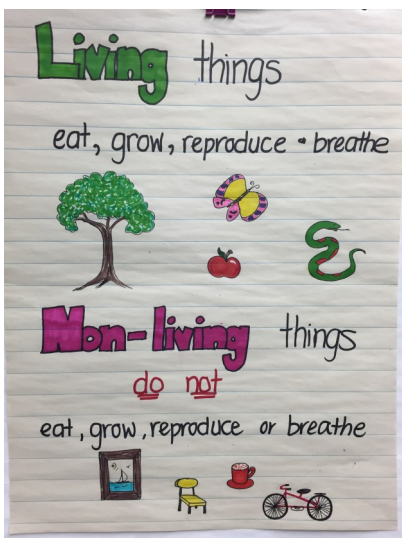 Living things
eat, grow, reproduce • breathe
Non-living things
do not
eat, grow, reproduce or breathe